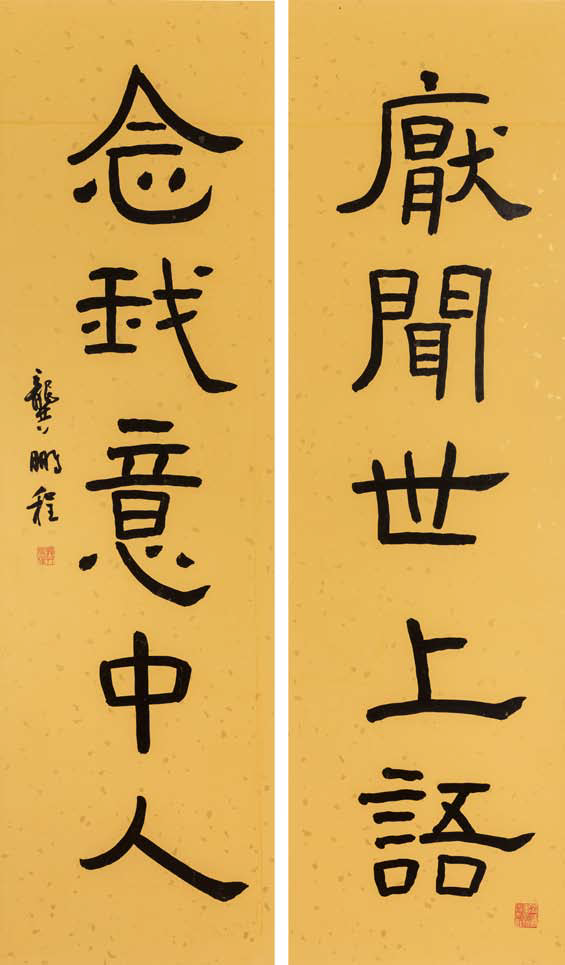 厭聞世上語
念我意中人
龔鵬程